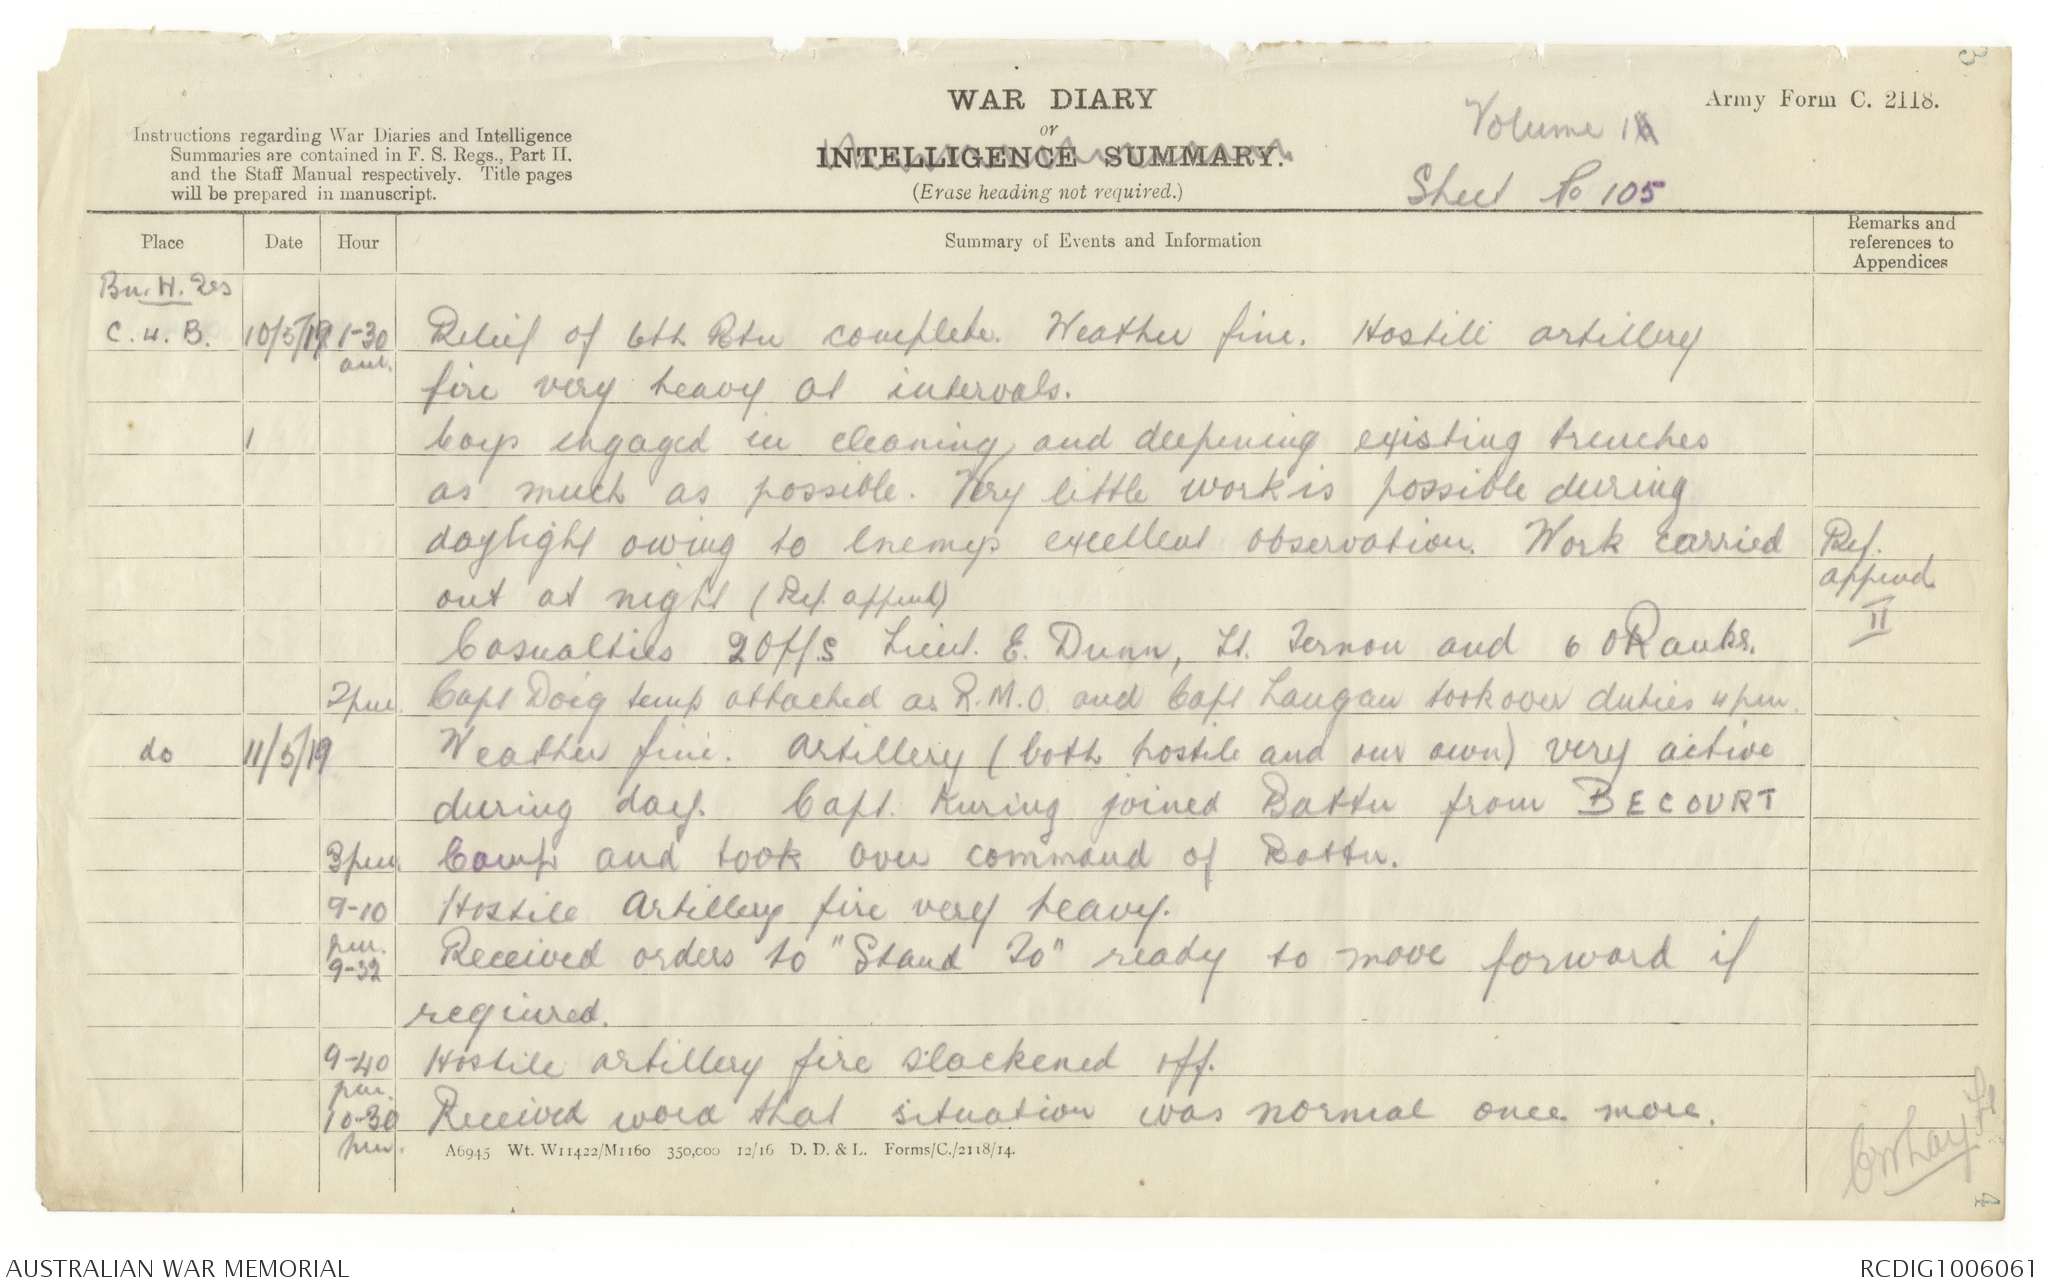 3
WAR DIARY
or
INTELLIGENCE SUMMARY.
(Erase heading not required.)
Army Form C. 2118.
Instructions regarding War Diaries and Intelligence
Summaries are contained in F. S. Regs., Part II.
and the Staff Manual respectively. Title pages
will be prepared in manuscript.
Volume
Sheet No 105
Place Date Hour Summary of Events and Information Remarks and references to Appendices
Bn. H. Qrs
C. 4. B. 10/5/17 1-30 Relief of 6th Btn complete. Weather fine. Hostile artillery
am. fire very heavy at intervals.
1 Coys engaged in cleaning and deepening existing trenches
as much as possible. Very little work is possible during
daylight owing to enemys excellent observation. Work carried Ref.
out at night (Ref. append) append
Casualties 2 Offs Lieut. E. Dunn, Lt. Vernon and 6 ORanks. II
2pm. Capt Doig temp attached as R.M.O. and Capt Langan took over duties 4pm.
do 11/5/17 Weather fine. Artillery (both hostile and our own) very active
during day. Capt. Kuring joined Battn from BECOURT
3pm. Camp and took over command of Battn.
9-10 Hostile Artillery fire very heavy.
pm.
9-32 Received orders to "Stand To" ready to move forward if
required.
9-40 Hostile artillery fire slackened off.
pm.
10-30 Received word that situation was normal once more.
pm.
A6945 Wt. W11422/M1160 350,000 12/16 D. D. & L. Forms/C./2118/14.
4
AUSTRALIAN WAR MEMORIAL
RCDIG1006061